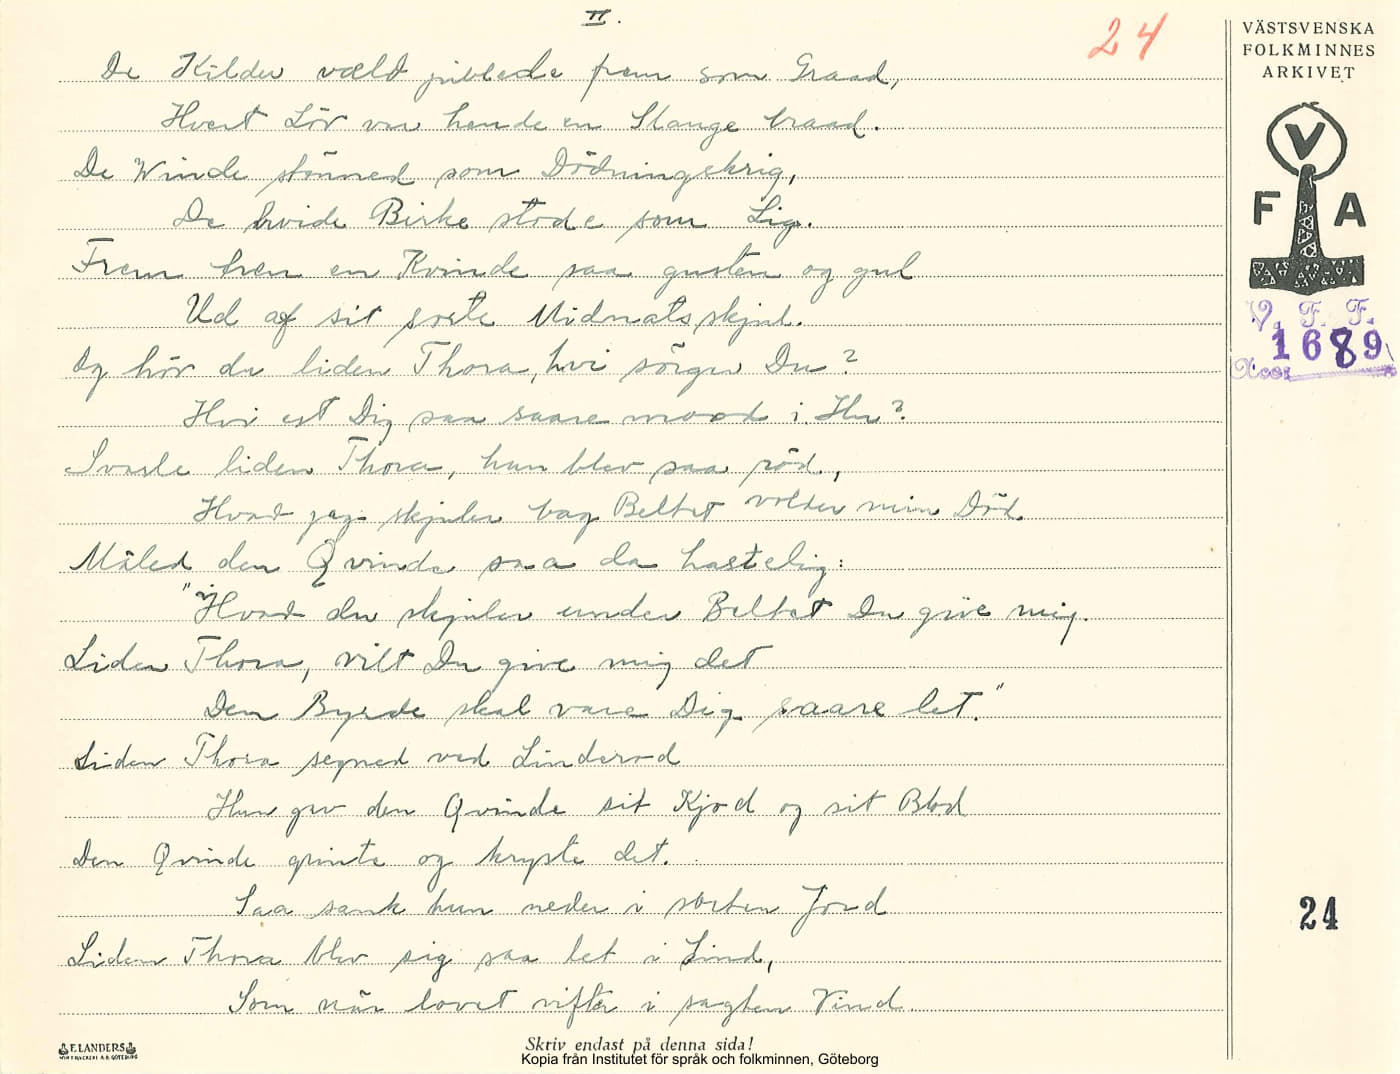 II.
24
VÄSTSVENSKA
FOLKMINNES
ARKIVET
V
F A
V. F. F.
1689
Acc:
De Kilder væld piblede frem som Graad,
Hvert Löv var hende en Slange braad.
De Winde stönned som Dödningskrig,
De hvide Birke stode som Lig.
Frem tren en Kvinde saa gusten og gul
Ud af sit sorte Midnatsskjul.
Og hör du liden Thora, hvi sörger Du?
Hvi est Dig saa saare mood i Hu?
Svarte liden Thora, hun blev saa röd,
Hvad jag skjuler bag Beltet volder min Död
Mäled den Qvinde saa da hastelig:
"Hvad du skjuler under Beltet Du give mig.
Liden Thora, vilt Du give mig det
Den Byrde skal vare Dig saare let."
Liden Thora segned ved Linderod
Hun gav den Qvinde sit Kjod og sit Blod
Den Qvinde grinte og kryste det.
Saa sank hun neder i sorten Jord
Liden Thora blev sig saa let i Sind,
Som när lovet vifter i sagten Vind.
24
F. LANDERS
Skriv endast på denna sida!
Kopia från Institutet för språk och folkminnen, Göteborg